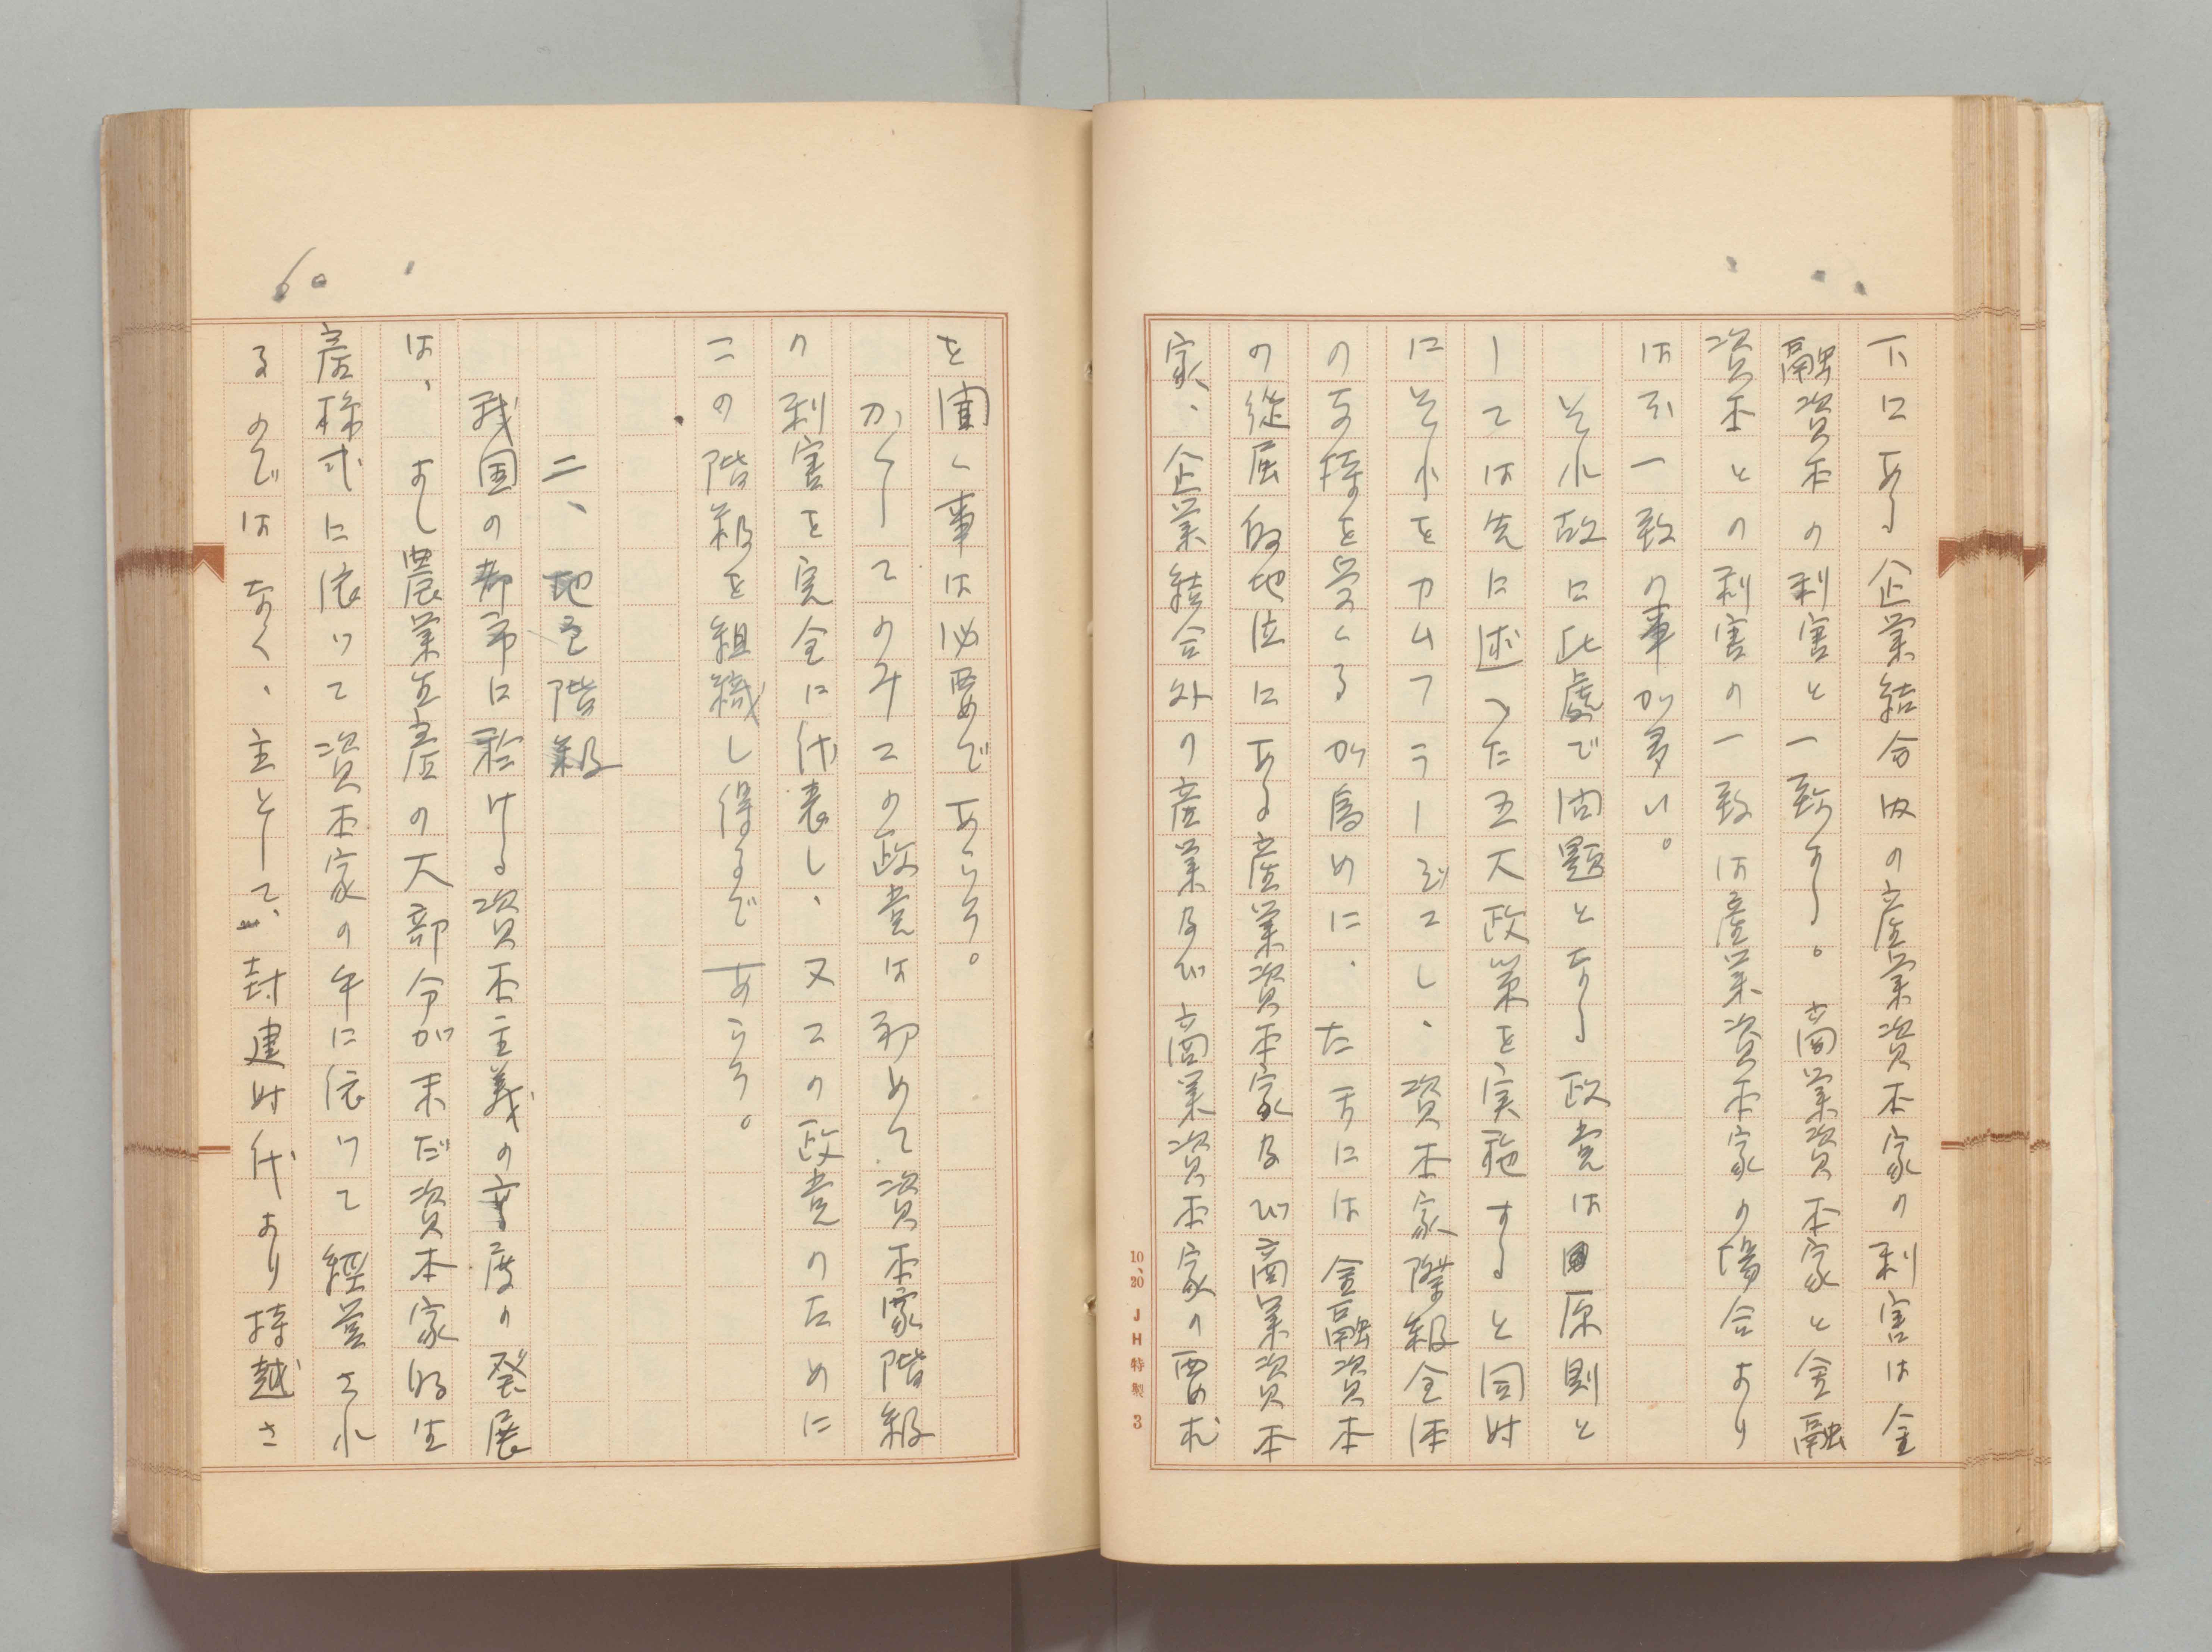 下にある企業結合内の産業資本家の利害は金
融資本の利害と一致する。商業資本家と金融
資本との利害の一致は産業資本家の場合より
は不一致の事が多い。
それ故に此處で問題となる政党は原則と
しては先に述べた五大政策を実施すると同時
にそれをカムフラーヂユし、資本家階級全体
の支持を受くるが為めに、た方には金融資本
の從属的地位にある産業資本家及び商業資本
家、企業結合外の産業及び商業資本家の要求
10、20 JH特製 3
を聞く事は必要であらう。
かくしてのみこの政党は初めて資本家階級
の利害を完全に代表し、又この政党のために
この階級を組織し得るであらう。
二、地主階級
我国の都市に於ける資本主義の高度の発展
は、よし農業生産の大部分が未だ資本家的生
産様式に依って資本家の手に依って経営され
るのではなく、主として、封建時代より持越さ
60